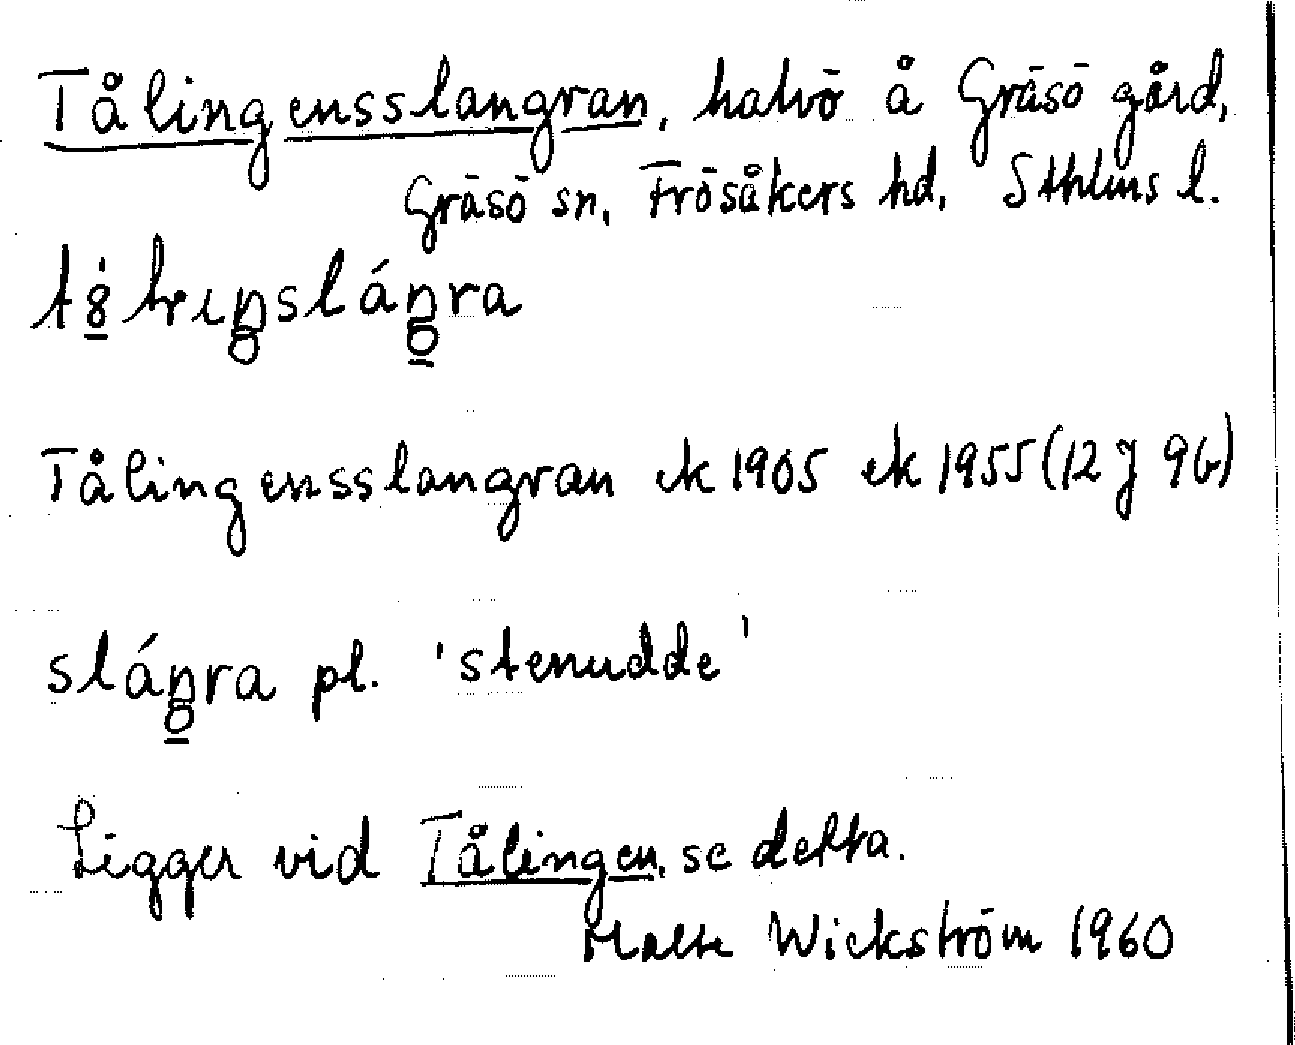 Tålingensslangran, halvö å Gräsö gård,
Gräsö sn, Frösåkers hd, Sthlms l.
Tålingensslangran ek 1905 ek 1955 (12 J 9b)
sláŋra pl. 'stenudde'
Ligger vid Tålingen, se detta.
Malte Wickström 1960